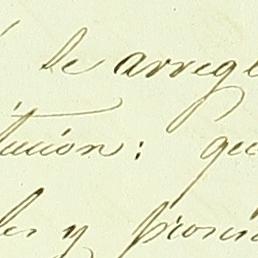 se arregl
itucion: que
les y provin